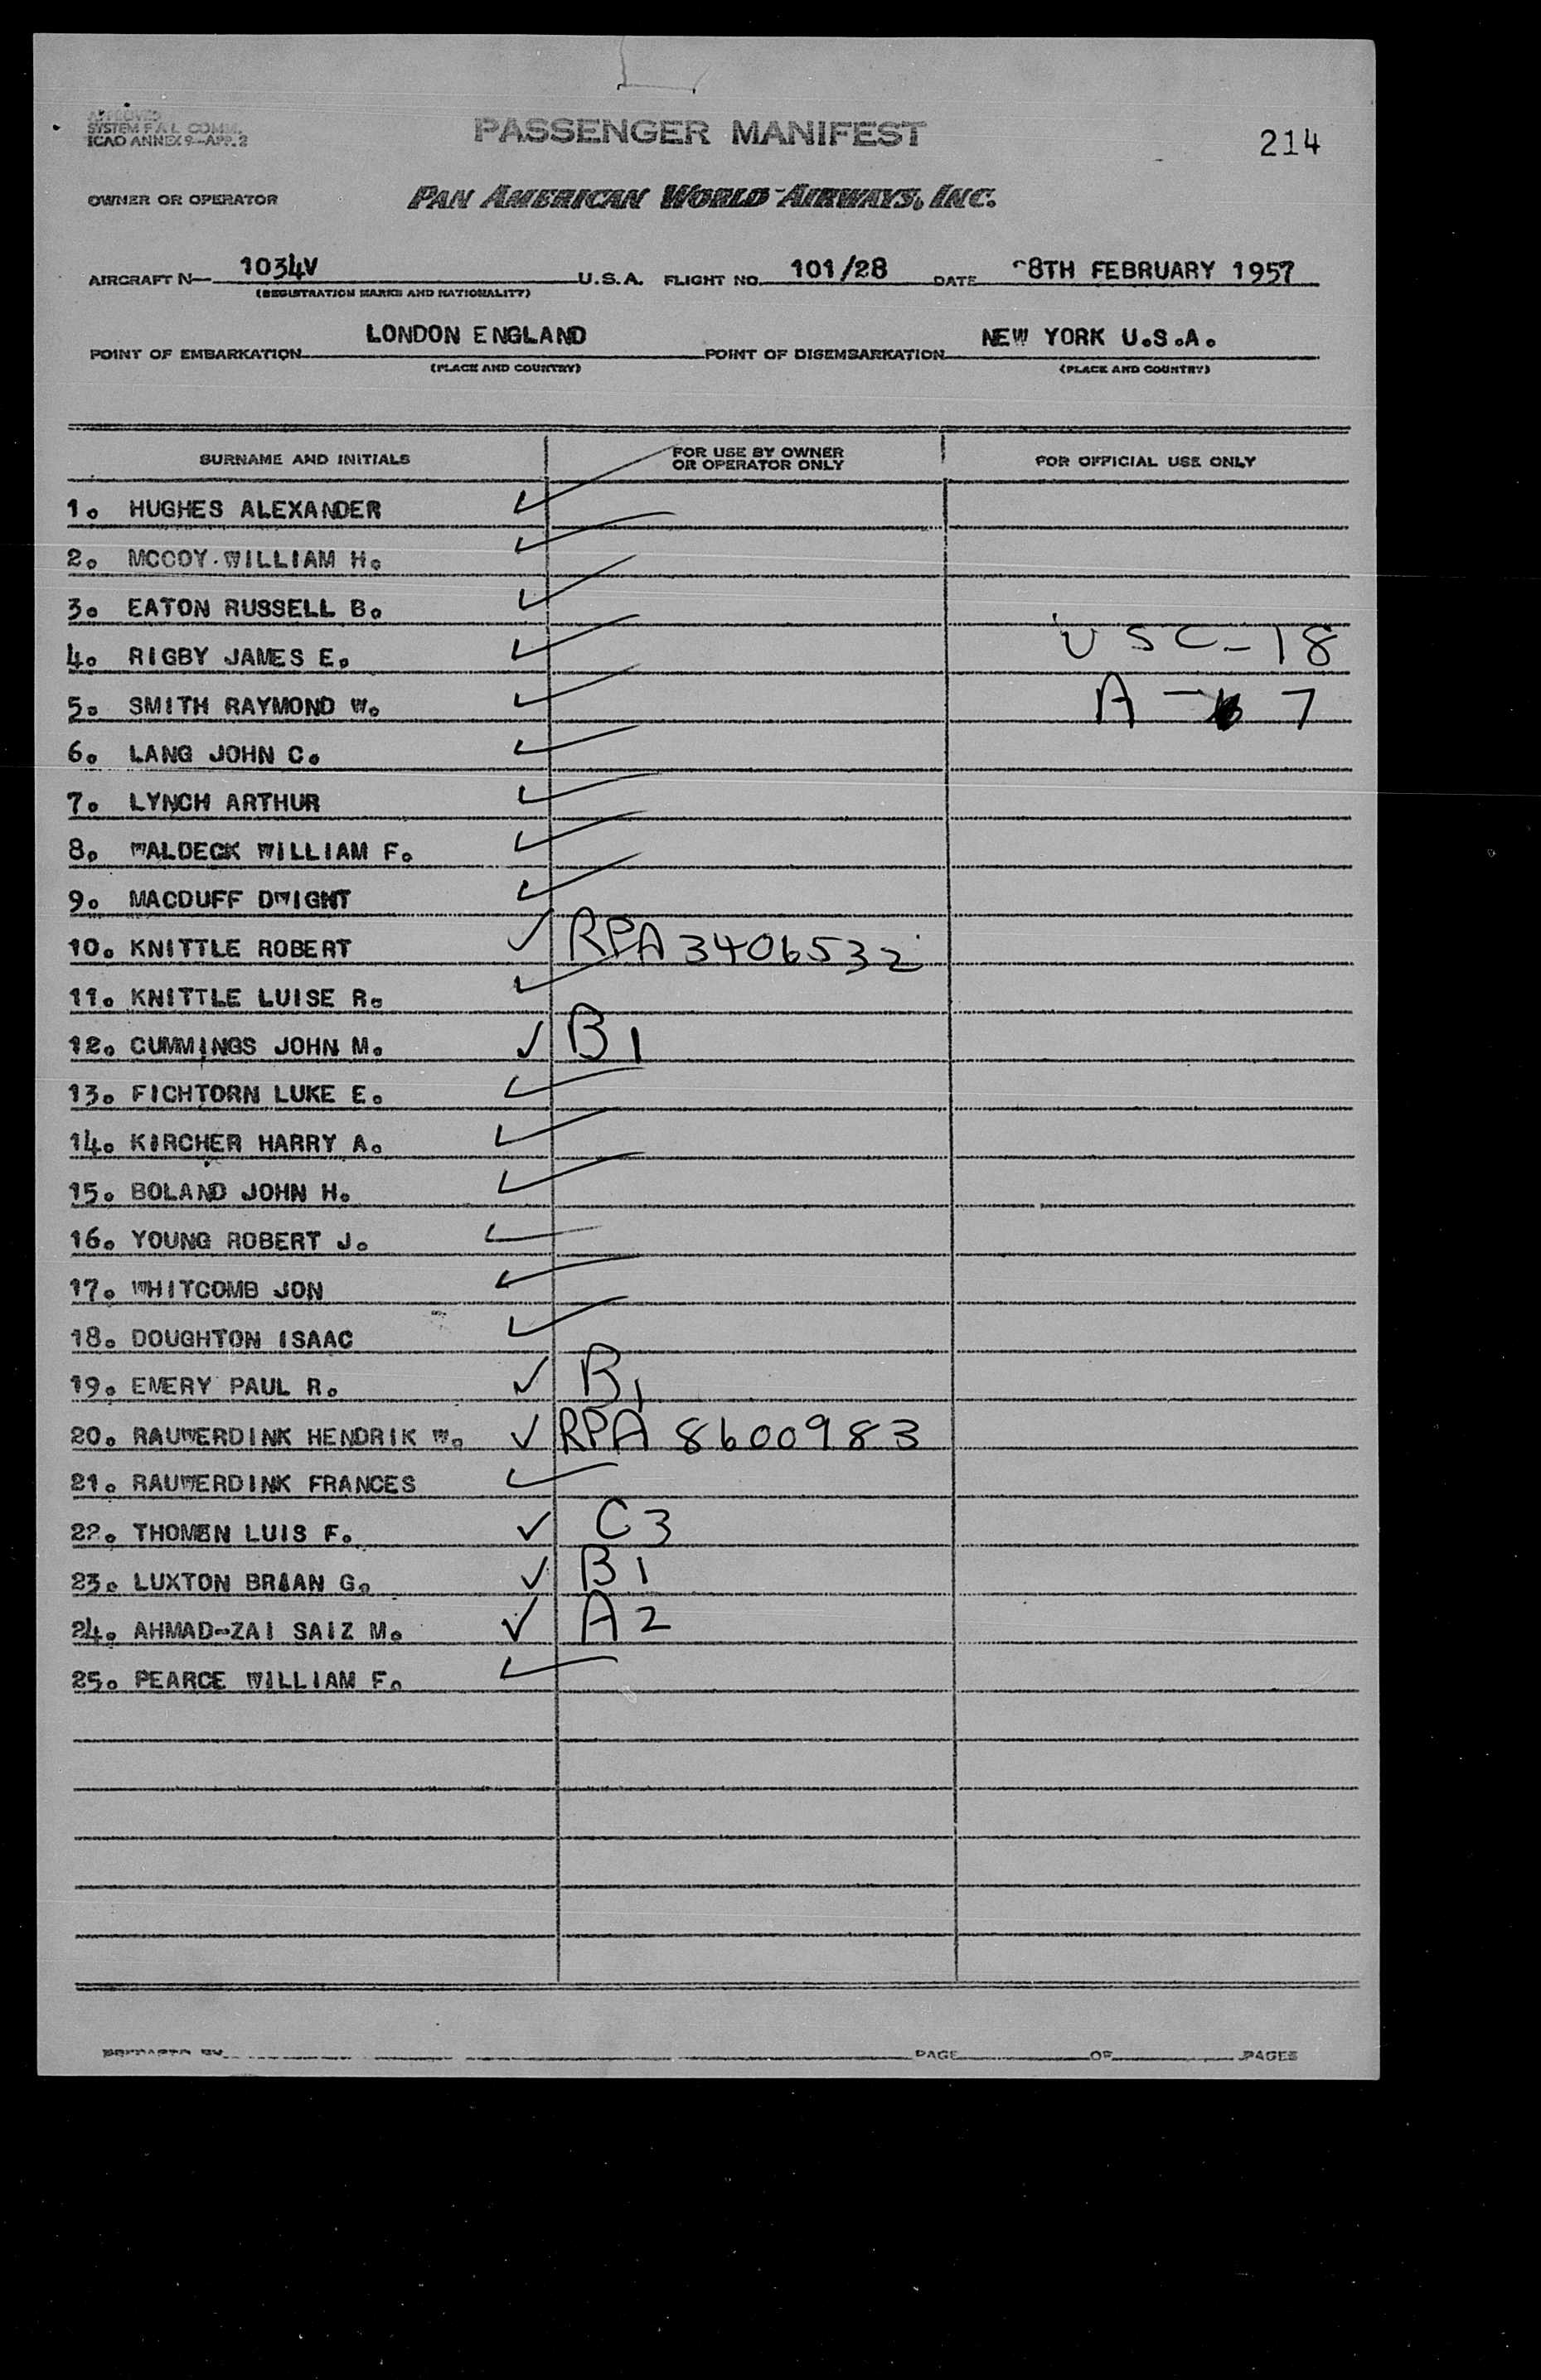 APPROVED
SYSTEM F A L COMM.
ICAO ANNEX 9—APP. 2
PASSENGER MANIFEST
214
OWNER OR OPERATOR PAN AMERICAN WORLD AIRWAYS, INC.
AIRCRAFT N— 1034V U.S.A. FLIGHT NO. 101/28 DATE 28TH FEBRUARY 1957
(REGISTRATION MARKS AND NATIONALITY)
POINT OF EMBARKATION LONDON ENGLAND POINT OF DISEMBARKATION NEW YORK U.S.A.
(PLACE AND COUNTRY) (PLACE AND COUNTRY)
SURNAME AND INITIALS FOR USE BY OWNER OR OPERATOR ONLY FOR OFFICIAL USE ONLY
1. HUGHES ALEXANDER ✓
2. MCCOY WILLIAM H. ✓
3. EATON RUSSELL B. ✓
4. RIGBY JAMES E. ✓ USC-18
5. SMITH RAYMOND W. ✓ A - 7
6. LANG JOHN C. ✓
7. LYNCH ARTHUR ✓
8. WALDECK WILLIAM F. ✓
9. MACDUFF DWIGHT ✓
10. KNITTLE ROBERT ✓ RPA 3406532
11. KNITTLE LUISE R. ✓
12. CUMMINGS JOHN M. ✓ B1
13. FICHTORN LUKE E. ✓
14. KIRCHER HARRY A. ✓
15. BOLAND JOHN H. ✓
16. YOUNG ROBERT J. ✓
17. WHITCOMB JON ✓
18. DOUGHTON ISAAC ✓
19. EMERY PAUL R. ✓ B1
20. RAUWERDINK HENDRIK W. ✓ RPA 8600983
21. RAUWERDINK FRANCES ✓
22. THOMEN LUIS F. ✓ C3
23. LUXTON BRIAN G. ✓ B1
24. AHMAD-ZAI SAIZ M. ✓ A2
25. PEARCE WILLIAM F. ✓
PREPARED BY PAGE OF PAGES